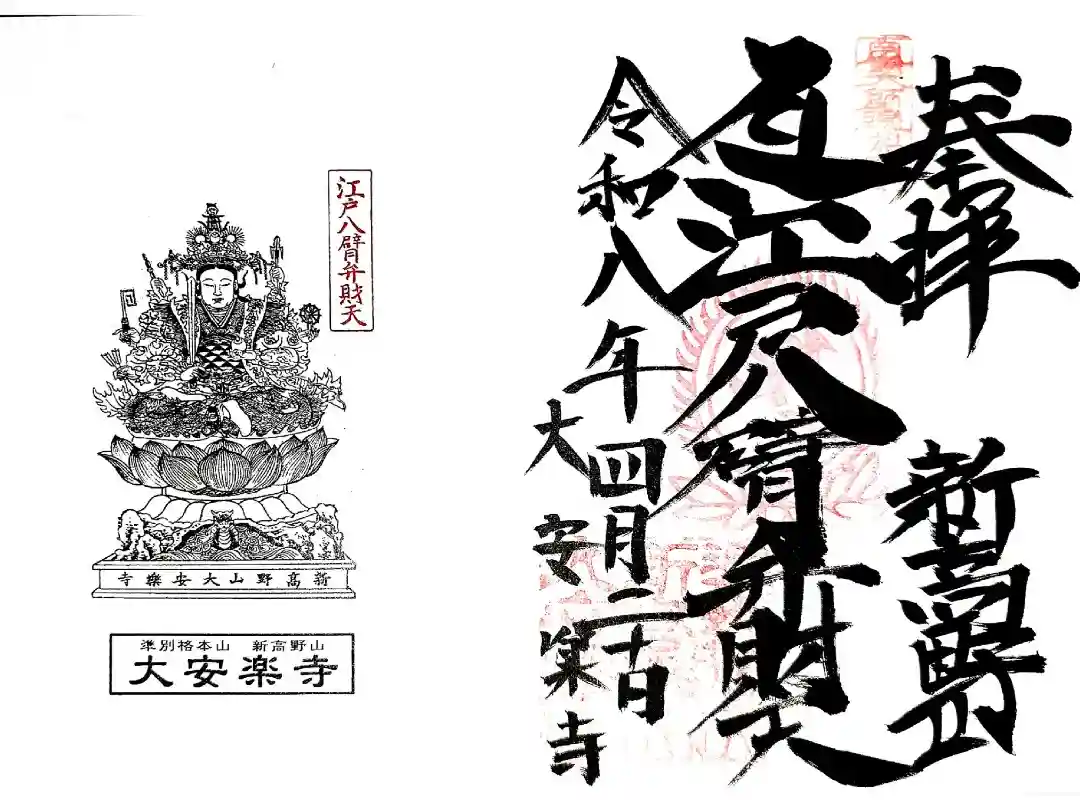 奉拝 新高野山
江戸八臂弁財天
令和八年四月二十日
大安楽寺
江戸八臂弁財天
新髙野山大安樂寺
準別格本山 新高野山
大安楽寺